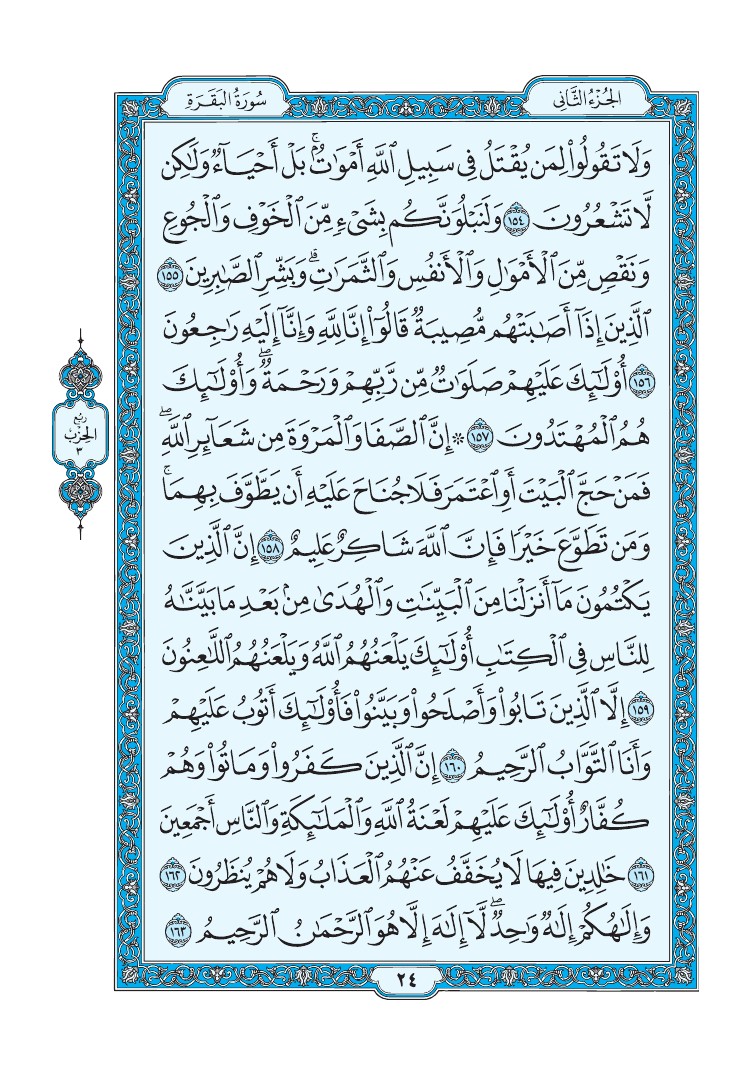 الجُزْءُ الثَّانِي
سُورَةُ البَقَرَةِ
وَلَا تَقُولُوا۟ لِمَن يُقْتَلُ فِى سَبِيلِ ٱللَّهِ أَمْوَٰتٌۢ ۚ بَلْ أَحْيَآءٌ وَلَـٰكِن
لَّا تَشْعُرُونَ ١٥٤ وَلَنَبْلُوَنَّكُم بِشَىْءٍ مِّنَ ٱلْخَوْفِ وَٱلْجُوعِ
وَنَقْصٍ مِّنَ ٱلْأَمْوَٰلِ وَٱلْأَنفُسِ وَٱلثَّمَرَٰتِ ۗ وَبَشِّرِ ٱلصَّـٰبِرِينَ ١٥٥
ٱلَّذِينَ إِذَآ أَصَـٰبَتْهُم مُّصِيبَةٌ قَالُوٓا۟ إِنَّا لِلَّهِ وَإِنَّآ إِلَيْهِ رَٰجِعُونَ
١٥٦ أُو۟لَـٰٓئِكَ عَلَيْهِمْ صَلَوَٰتٌ مِّن رَّبِّهِمْ وَرَحْمَةٌ ۖ وَأُو۟لَـٰٓئِكَ
هُمُ ٱلْمُهْتَدُونَ ١٥٧ ۞ إِنَّ ٱلصَّفَا وَٱلْمَرْوَةَ مِن شَعَآئِرِ ٱللَّهِ ۖ
فَمَنْ حَجَّ ٱلْبَيْتَ أَوِ ٱعْتَمَرَ فَلَا جُنَاحَ عَلَيْهِ أَن يَطَّوَّفَ بِهِمَا ۚ
وَمَن تَطَوَّعَ خَيْرًا فَإِنَّ ٱللَّهَ شَاكِرٌ عَلِيمٌ ١٥٨ إِنَّ ٱلَّذِينَ
يَكْتُمُونَ مَآ أَنزَلْنَا مِنَ ٱلْبَيِّنَـٰتِ وَٱلْهُدَىٰ مِنۢ بَعْدِ مَا بَيَّنَّـٰهُ
لِلنَّاسِ فِى ٱلْكِتَـٰبِ أُو۟لَـٰٓئِكَ يَلْعَنُهُمُ ٱللَّهُ وَيَلْعَنُهُمُ ٱللَّـٰعِنُونَ
١٥٩ إِلَّا ٱلَّذِينَ تَابُوا۟ وَأَصْلَحُوا۟ وَبَيَّنُوا۟ فَأُو۟لَـٰٓئِكَ أَتُوبُ عَلَيْهِمْ
وَأَنَا ٱلتَّوَّابُ ٱلرَّحِيمُ ١٦٠ إِنَّ ٱلَّذِينَ كَفَرُوا۟ وَمَاتُوا۟ وَهُمْ
كُفَّارٌ أُو۟لَـٰٓئِكَ عَلَيْهِمْ لَعْنَةُ ٱللَّهِ وَٱلْمَلَـٰٓئِكَةِ وَٱلنَّاسِ أَجْمَعِينَ
١٦١ خَـٰلِدِينَ فِيهَا لَا يُخَفَّفُ عَنْهُمُ ٱلْعَذَابُ وَلَا هُمْ يُنظَرُونَ ١٦٢
وَإِلَـٰهُكُمْ إِلَـٰهٌ وَٰحِدٌ ۖ لَّآ إِلَـٰهَ إِلَّا هُوَ ٱلرَّحْمَـٰنُ ٱلرَّحِيمُ ١٦٣
رُبع
الحِزْب
٣
٢٤